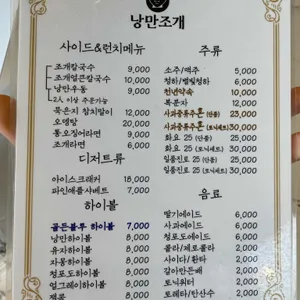 낭만조개
사이드&런치메뉴
조개칼국수 9,000
조개얼큰칼국수 10,000
낭만우동 9,000
*2人 이상 주문가능
묵은지 참치말이 12,000
오뎅탕 20,000
통오징어라면 9,000
조개라면 6,000
디저트류
아이스크래커 18,000
파인애플샤베트 7,000
하이볼
골든블루 하이볼 7,000
낭만하이볼 8,000
유자하이볼 8,000
자몽하이볼 8,000
청포도 하이볼 8,000
얼그레이하이볼 8,000
잭콕
주류
소주/맥주 5,000
청하/별빛청하 6,000
천년약속 10,000
복분자 12,000
사과증류주혼 (단품) 23,000
사과증류주혼 (토닉세트) 30,000
화요 25 (단품) 25,000
화요 25 (토닉세트) 30,000
일품진로 25 (단품) 25,000
일품진로 25 (토닉세트) 30,000
음료
딸기에이드 6,000
사과에이드 6,000
청포도에이드 6,000
콜라/제로콜라 2,000
사이다/환타 2,000
갈아만든배 2,000
토닉워터 2,000
토레타/탄산수 2,000